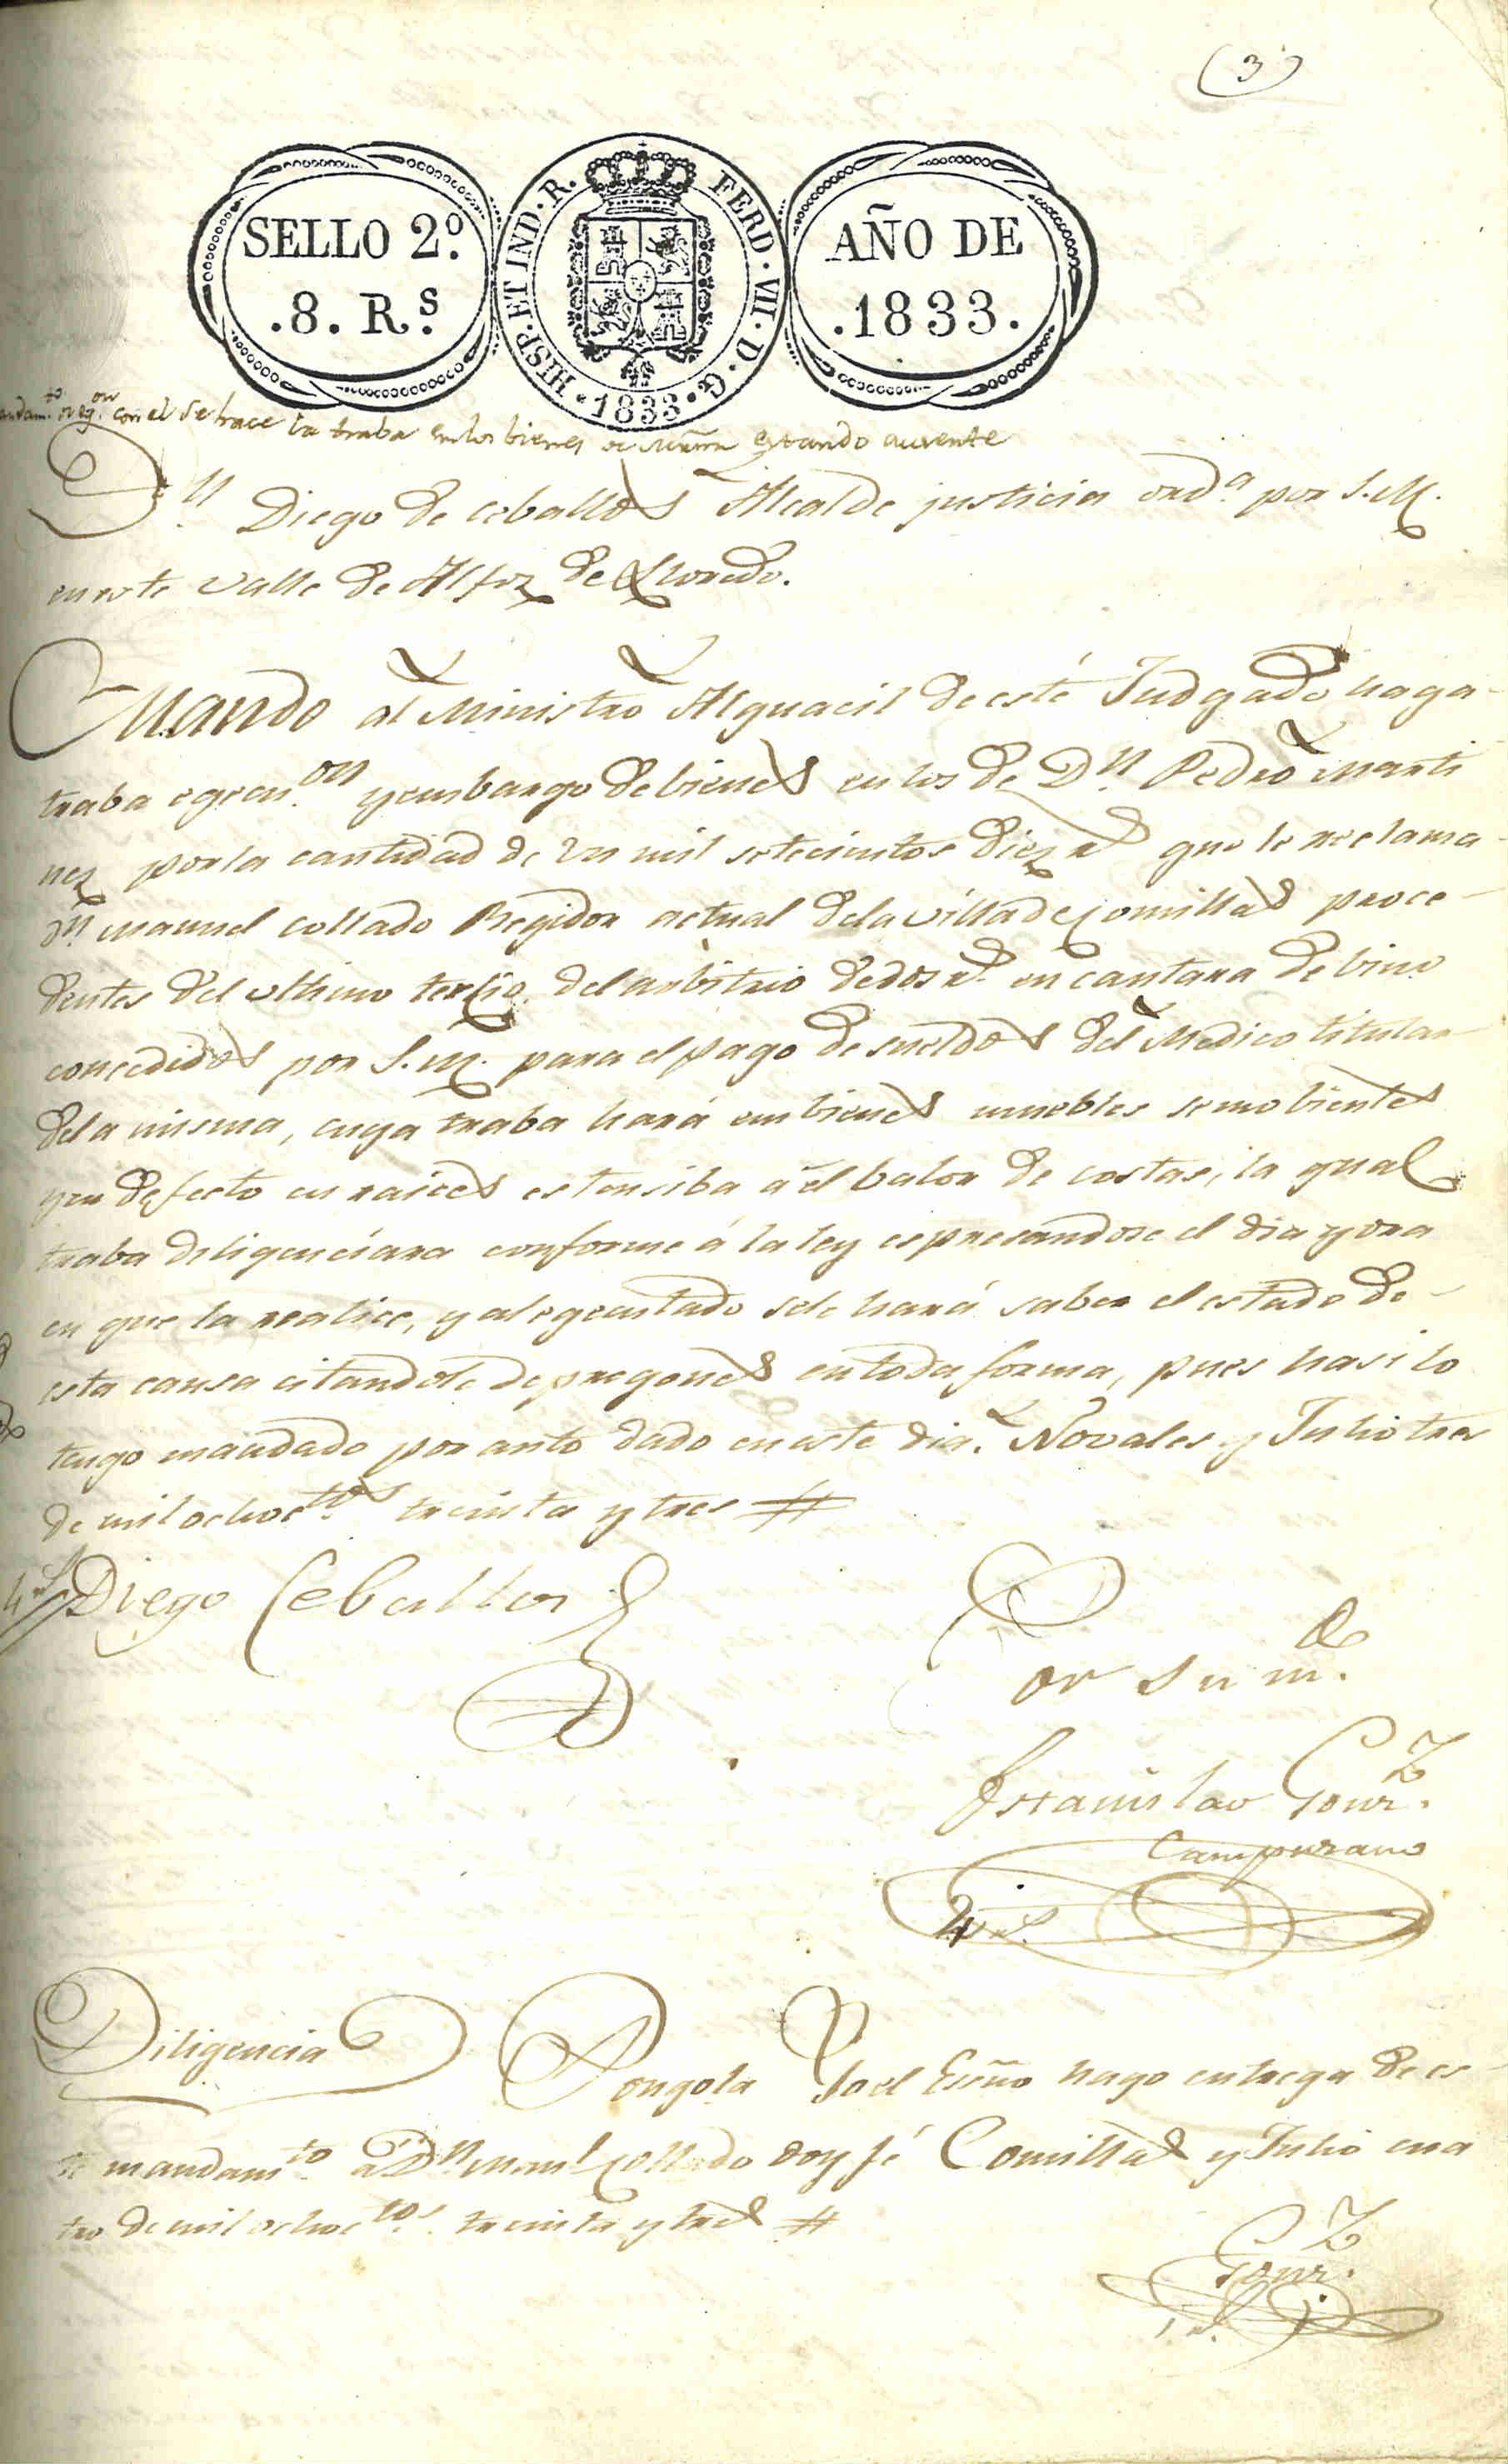 (3)
SELLO 2º.
.8. Rs.
HISP. ET IND. R. FERD. VII. D. G. 1833.
AÑO DE
.1833.
con el se hace la traba en los bienes de estando ausente
Dn. Diego de Ceballos Alcalde justicia orda por S.M.
en este Valle de Alfoz de Lloredo.
Mando al Ministro Alguacil de esté Judgado haga
traba egecuon. y embargo de bienes en los de Dn. Pedro Marti
nez por la cantidad de un mil setecientos diez rs que le reclama
Dn Manuel Collado Regidor actual dela villa de Comillas proce-
dentes del ultimo tercio del arbitrio de dos rs. en cantara de bino
concedidos por S.M. para el pago de sueldos del Medico titular
dela misma, cuya traba hará em bienes muebles semobientes
y en defecto en raices estensiba á el balor de costas, la qual
traba diligenciara conforme á la ley espresandose el dia y ora
en que la realice, y al egecutado sele hará saber el estado de
esta causa citandole de pregones en toda forma, pues hasi lo
tengo mandado por auto dado en este dia. Novales y Julio tres
de mil ochoctos. treinta y tres #
4 rs Diego Ceballos
Por su mdo.
Estanislao Gonz.
Campuzano
4 rs.
Diligencia Pongola Yo el Esño hago entrega de es-
te mandamto a Dn Manl Collado doy fé Comillas y Julio cua
tro de mil ochoctos. treinta y tres #
Gonz.
1 r.